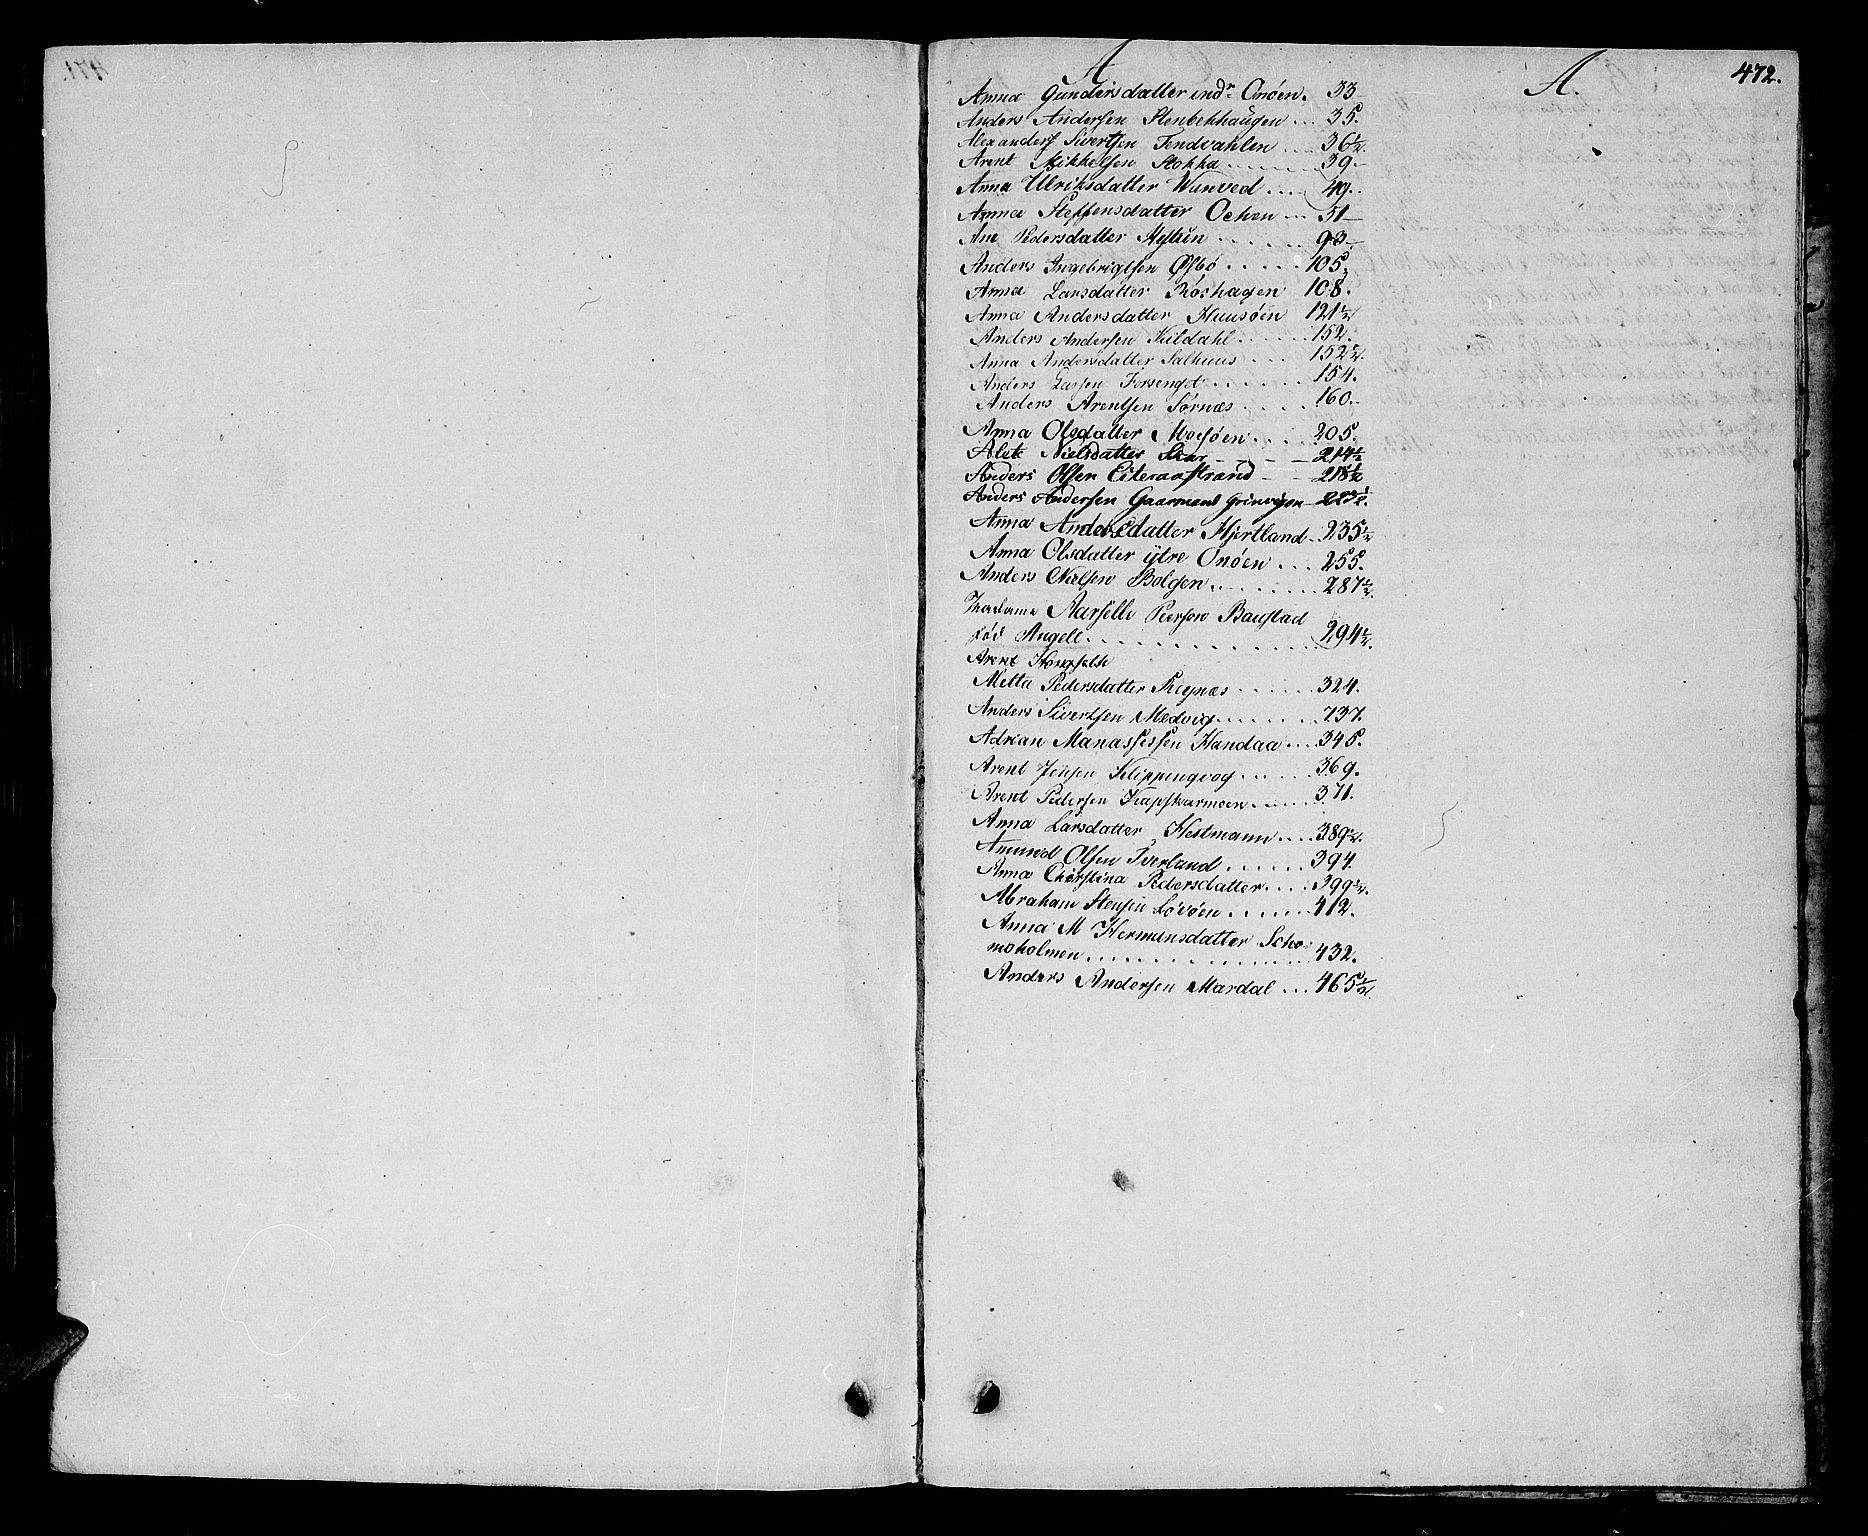 472.
A
A.
Anna Gundersdatter indr Onøen. 33
Anders Andersen Stenbekhaugen ... 35.
Alexander Sivertsen Tendvahlen ... 36½.
Arent Mikkelsen Stokka ...... 39
Anna Ulriksdatter Wunved .... 49.
Anna Steffensdatter Ochen ... 51
Ane Pedersdatter Møstun ...... 93
Anders Ingebrigtsen Øsbø ..... 105.
Anna Larsdatter Røshagen 108.
Anna Andersdatter Huusøen 121½
Anders Andersen Kildahl ...... 152.
Anna Andersdatter Salhuus .... 152½.
Anders Larsen Forsenget ...... 154.
Anders Arentsen Sørnæs ..... 160.
Anna Olsdatter Mosjøen .... 205.
Alet Nielsdatter Skar 214½
Anders Olsen Eiteraastrand 218½
Anders Andersen Gaarmand Grønvigen
Anna Andersdatter Hjertland 235½
Anna Olsdatter ytre Onøen ... 255.
Anders Nielsen Bolgen ........ 287½.
Madame Peersen Baustad
født Angell ............ 294½.
Arent
Metta Pedersdatter Regnæs ...... 324.
Anders Sivertsen Mædvig ........ 737.
Adrian Manassessen Handaa ... 345.
Arent Jensen Klippingvog ...... 369.
Arent Pedersen Kapskarmoen ...... 371.
Anna Larsdatter Hestmann .... 389½.
Amund Olsen Tverland ...... 394.
Anna Christina Pedersdatter .... 399½.
Abraham Stensen Løvøen ....... 412.
Anna M Hermansdatter Scho-
moholmen ............... 432.
Anders Andersen Mardal ... 465½